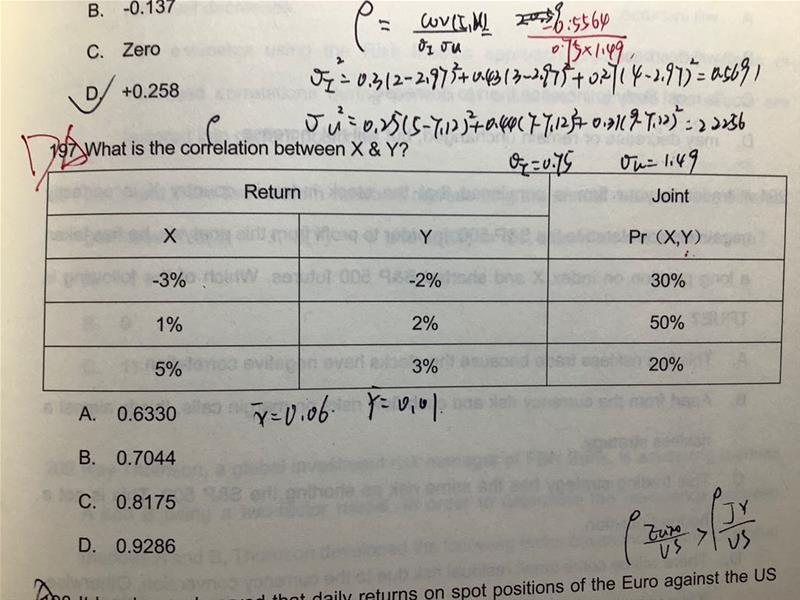 B. -0.137
C. Zero
D. +0.258
ρ = cov(I,M) / σI σu
-0.5564 / 0.75×1.49
σI² = 0.3(2-2.97)²+0.43(3-2.97)²+0.27(4-2.97)² = 0.5691
σu² = 0.25(5-7.12)²+0.44(7-7.12)²+0.31(9-7.12)² = 2.2256
σI=0.75 σu=1.49
197 What is the correlation between X & Y?
Return Joint
X Y Pr (X,Y)
-3% -2% 30%
1% 2% 50%
5% 3% 20%
A. 0.6330
X̄=0.06 Ȳ=0.01
B. 0.7044
C. 0.8175
D. 0.9286
ρ Euro/US > ρ JY/US
that daily returns on spot positions of the Euro against the US